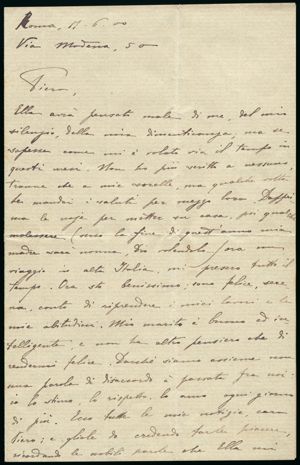 Roma, 17. 6. 00
Via Modena, 50
Piero,
Ella avrà pensato male di me, del mio
silenzio, della mia dimenticanza, ma se
sapesse come mi è volato via il tempo in
questi mesi. Non ho più scritto a nessuno,
tranne che a mie sorelle, ma qualche volta
le mandai i saluti per mezzo loro. Dapprima
la noja per mettere su casa, poi qualche
malessere (verso la fine di quest'anno mia
madre sarà nonna, Dio volendolo) ora un
viaggio in alta Italia, mi presero tutto il
tempo. Ora sto benissimo, sono felice, sere
na, conto di riprendere i miei lavori e le
mie abitudini. Mio marito è buono ed in-
telligente, e non ha altro pensiero che di
rendermi felice. Dacchè siamo assieme non
una parola di disaccordo è passata fra noi
io lo stimo, lo rispetto, lo amo ogni giorno
di più. Ecco tutte le mie notizie, caro
Piero; e gliele do credendo farle piacere,
ricordando le nobili parole che Ella mi